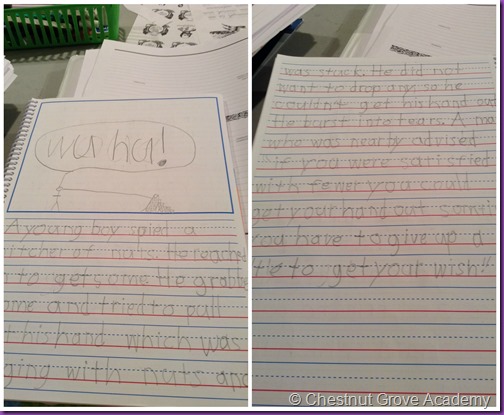 wa ha!
A young boy spiet a
itcher of nuts. He reached
n to get some He grabbe
ome and tried to pull
t his hand which was
ging with nuts and
was stuck. He did not
want to drop any so he
couldn't get his hand ou
He burst into tears. A ma
who was nearby advised
"if you were satisfied
with fewer you could
get your hand out
you have to give up a
to get your wish!"
© Chestnut Grove Academy